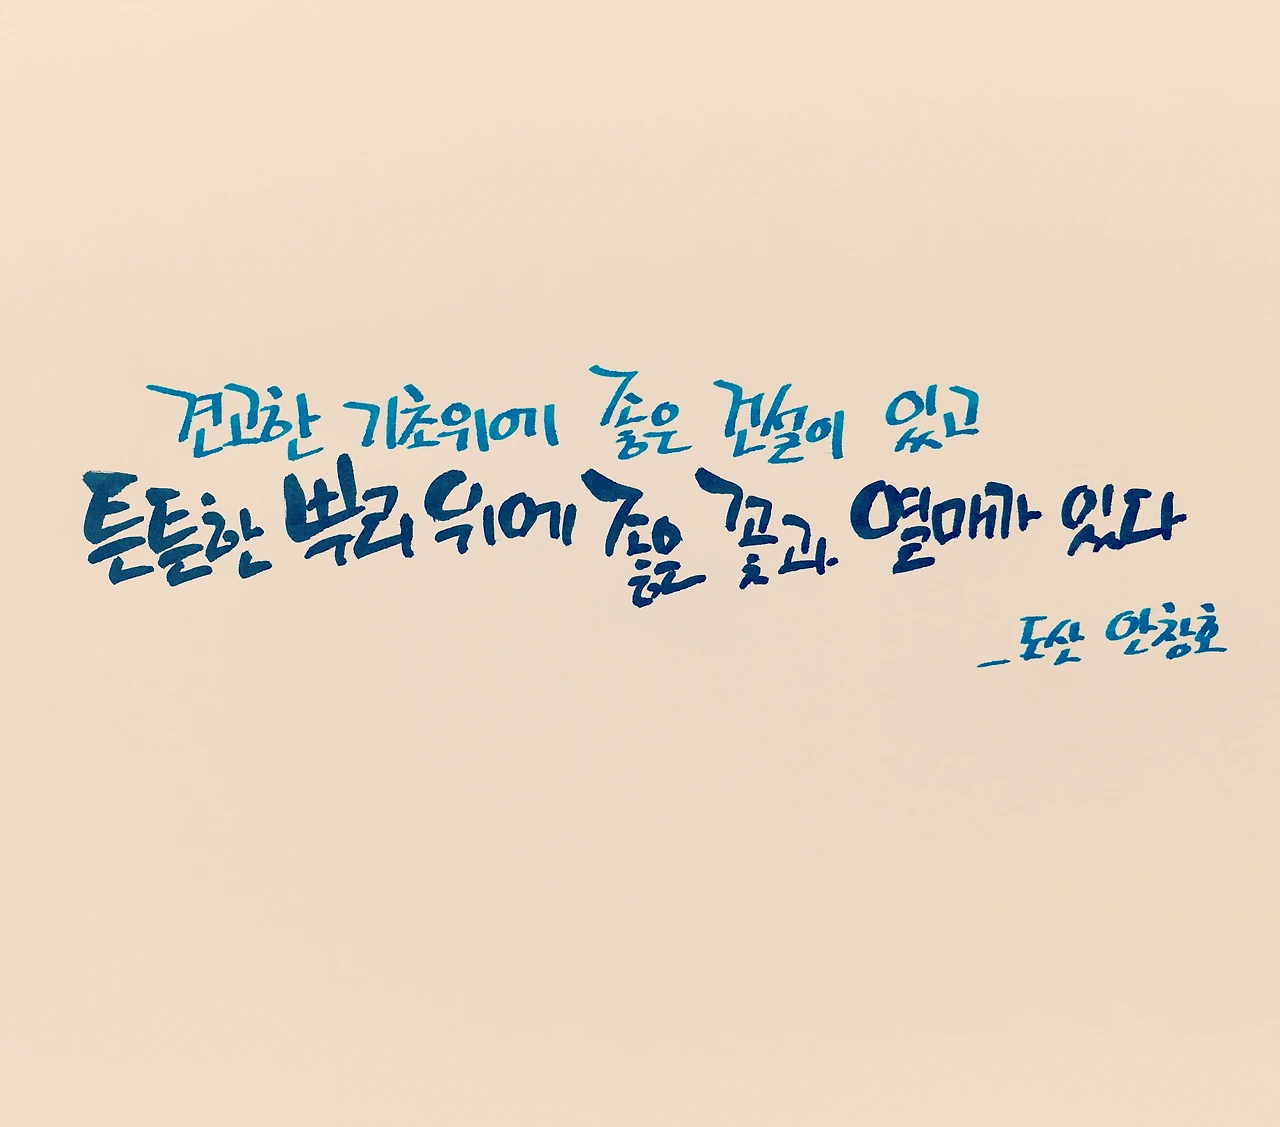 견고한 기초위에 좋은 건설이 있고
튼튼한 뿌리 위에 좋은 꽃과 열매가 있다
_도산 안창호